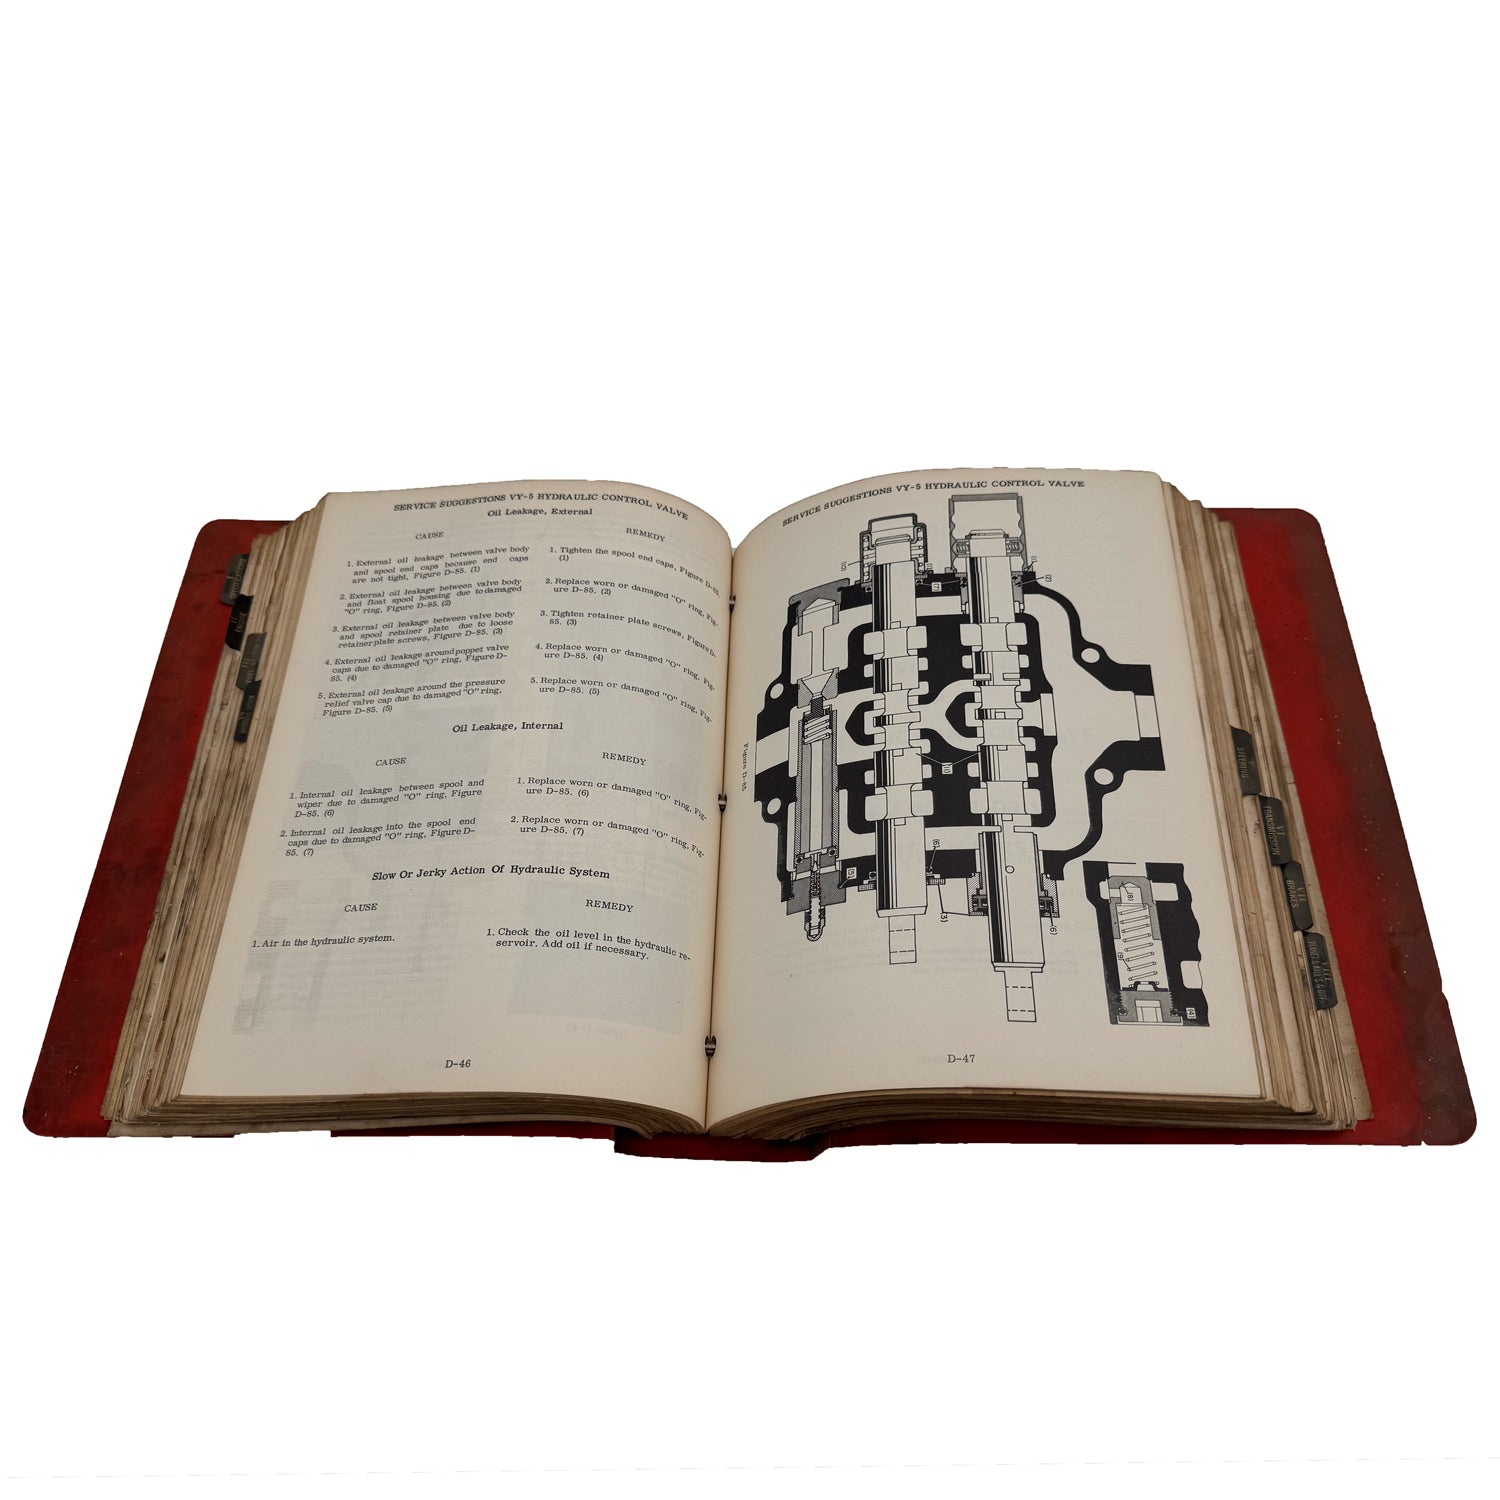 SERVICE SUGGESTIONS VY-5 HYDRAULIC CONTROL VALVE
Oil Leakage, External
CAUSE
REMEDY
1. External oil leakage between valve body
and spool end caps because end caps
are not tight, Figure D-85. (1)
1. Tighten the spool end caps, Figure D-85.
(1)
2. External oil leakage between valve body
and float spool housing due to damaged
"O" ring, Figure D-85. (2)
2. Replace worn or damaged "O" ring, Fig-
ure D-85. (2)
3. External oil leakage between valve body
and spool retainer plate due to loose
retainer plate screws, Figure D-85. (3)
3. Tighten retainer plate screws, Figure D-
85. (3)
4. External oil leakage around poppet valve
caps due to damaged "O" ring, Figure D-
85. (4)
4. Replace worn or damaged "O" ring, Fig-
ure D-85. (4)
5. External oil leakage around the pressure
relief valve cap due to damaged "O" ring,
Figure D-85. (5)
5. Replace worn or damaged "O" ring, Fig-
ure D-85. (5)
Oil Leakage, Internal
CAUSE
REMEDY
1. Internal oil leakage between spool and
wiper due to damaged "O" ring, Figure
D-85. (6)
1. Replace worn or damaged "O" ring, Fig-
ure D-85. (6)
2. Internal oil leakage into the spool end
caps due to damaged "O" ring, Figure D-
85. (7)
2. Replace worn or damaged "O" ring, Fig-
ure D-85. (7)
Slow Or Jerky Action Of Hydraulic System
CAUSE
REMEDY
1. Air in the hydraulic system.
1. Check the oil level in the hydraulic re-
servoir. Add oil if necessary.
D-46
SERVICE SUGGESTIONS VY-5 HYDRAULIC CONTROL VALVE
(2)
(7)
(11)
(6)
(5)
(3)
(6)
(8)
(9)
(4)
Figure D-85
D-47
II
ENGINE
V
STEERING
VI
TRANSMISSION
VII
BRAKES
VIII